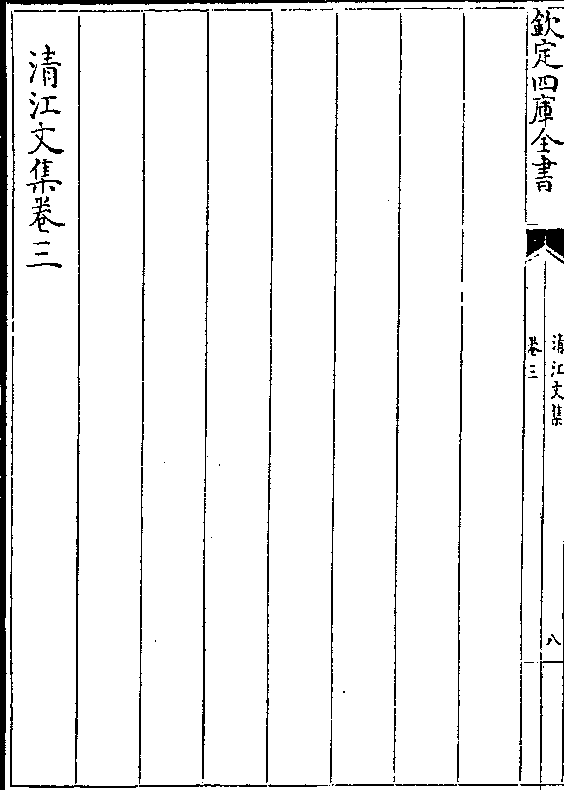 欽定四庫全書
清江文集
卷三
八
清江文集卷三